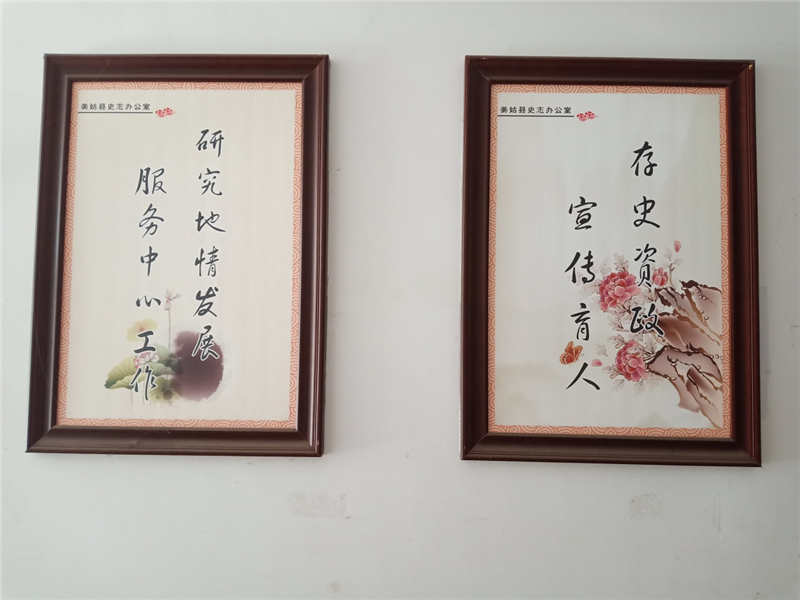 美姑县史志办公室
研究地情发展
服务中心工作
美姑县史志办公室
存史资政
宣传育人